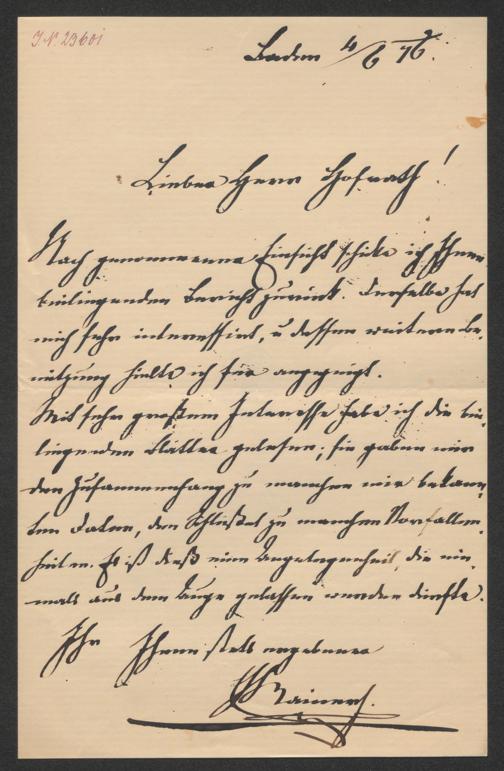 J.N. 23601
Baden 4/6 76.
Lieber Herr Hofrath!
Nach genommener Einsicht schicke ich Ihnen
beiliegenden Bericht zurück. Derselbe hat
mich sehr interessirt, u dessen weitere Be-
nützung hielte ich für angezeigt.
Mit sehr großem Interesse habe ich die bei-
liegenden Blätter gelesen; sie gaben mir
den Zusammenhang zu manchen mir bekann-
ten Daten, den Schlüssel zu manchen Vorfallen-
heiten. Es ist dieß eine Angelegenheit, die nie-
mals aus dem Auge gelassen werden dürfte.
Ihr Ihnen stets ergebener